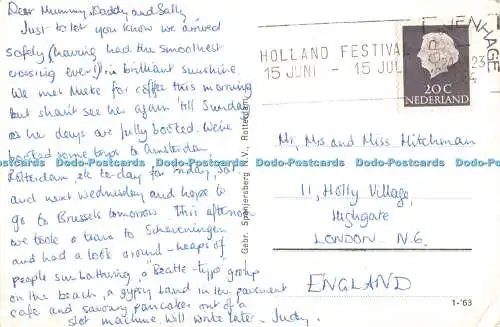 Dear Mummy, Daddy and Sally
Just to let you know we arrived
safely (having had the smoothest
crossing ever!) in brilliant sunshine.
We met Mike for coffee this morning
but shan't see her again 'till Sunday
as he days are fully booked. We've
booked some trips to Amsterdam,
Rotterdam etc to-day for Friday, Sat
and next Wednesday and hope to
go to Brussels tomorrow. This afternoon
we took a tram to Scheveningen
and had a look around - heaps of
people sunbathing, a "Beatle-type" group
on the beach, a gypsy band in the pavement
cafe and savoury pancakes out of a
slot machine. Will write later. Judy.
HOLLAND FESTIVAL
15 JUNI - 15 JULI
ENHAGE
23
20 C
NEDERLAND
Mr, Mrs and Miss Hitchman
11, Holly Village,
Highgate
LONDON N.6.
ENGLAND
Gebr. Spanjersberg N.V., Rotterdam
1-'63
Dodo-Postcards Dodo-Postcards Dodo-Postcards Dodo-Postcards Dodo-Postcards Dodo-Postcards